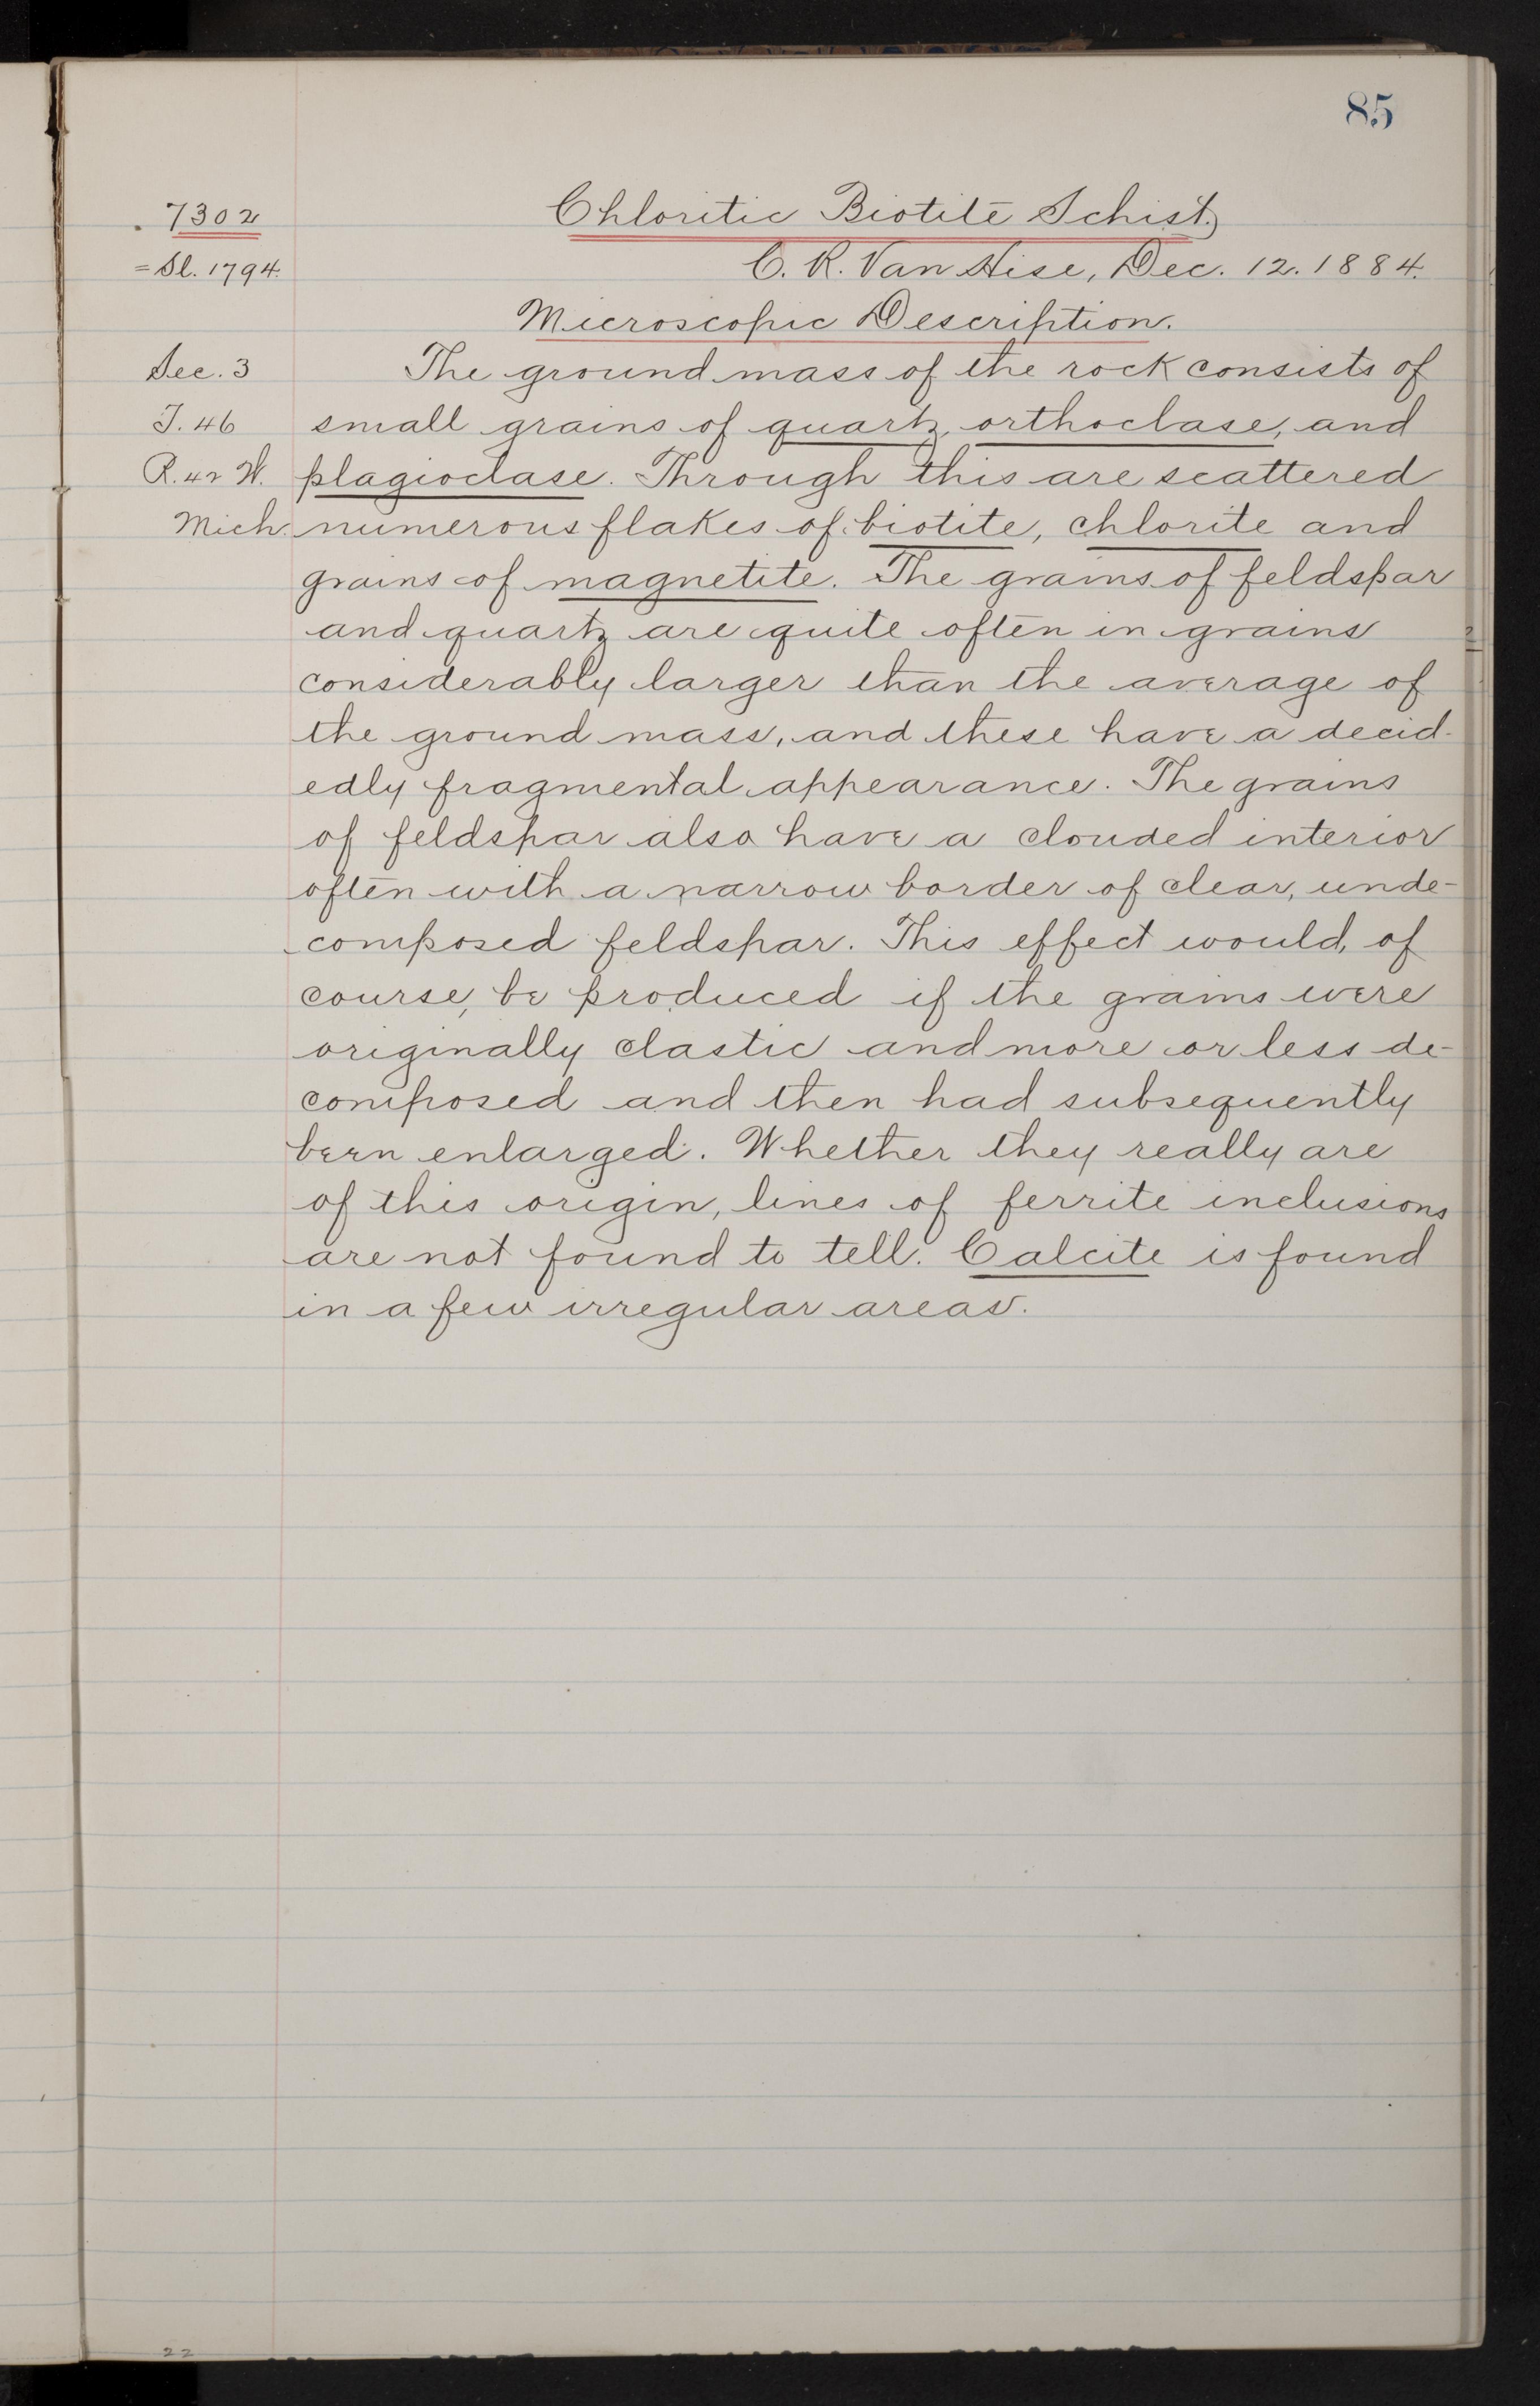 85
7302
Chloritic Biotite Schist.
= Sl. 1794.
C. R. Van Hise, Dec. 12. 1884.
Microscopic Description.
Sec. 3
The ground mass of the rock consists of
T. 46
small grains of quartz, orthoclase, and
R. 42 W.
plagioclase. Through this are scattered
Mich.
numerous flakes of biotite, chlorite and
grains of magnetite. The grains of feldspar
and quartz are quite often in grains
considerably larger than the average of
the ground mass, and these have a decid-
edly fragmental appearance. The grains
of feldspar also have a clouded interior
often with a narrow border of clear, unde-
composed feldspar. This effect would, of
course, be produced if the grains were
originally clastic and more or less de-
composed and then had subsequently
been enlarged. Whether they really are
of this origin, lines of ferrite inclusions
are not found to tell. Calcite is found
in a few irregular areas.
22